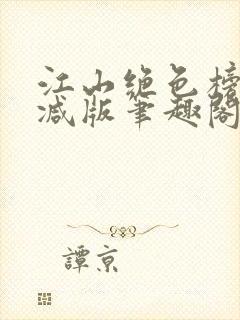 江山绝色榜
减版笔趣阁
譚京